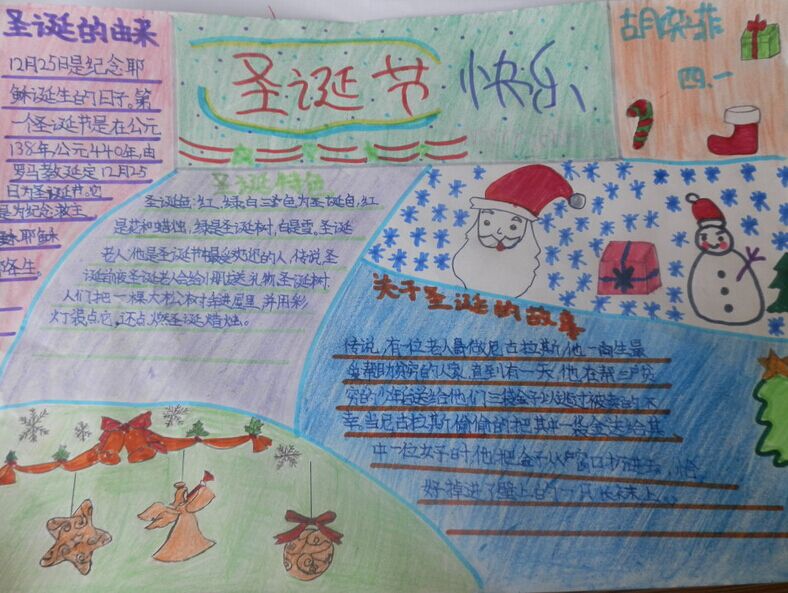 圣诞的由来
12月25日是纪念耶
稣诞生的日子,第
一个圣诞节是在公元
138年,公元440年,由
罗马教廷定12月25
日为圣诞节,它
是为纪念救主
耶稣
降生.
圣诞节 快乐
胡
四.一
圣诞特色
圣诞色:红,绿,白三色为圣诞色,红
是花和蜡烛,绿是圣诞树,白是雪。圣诞
老人:他是圣诞节最受欢迎的人,传说,圣
诞前夜圣诞老人会给小朋友送礼物.圣诞树:
人们把一棵大松树奔进屋里,并用彩
灯装点它,还点燃圣诞蜡烛。
关于圣诞的故事
传说,有一位老人叫做尼古拉斯,他一向生最
爱帮助贫穷的人家,直到有一天,他在帮三户贫
穷的少年台送给他们三袋金子以逃过被卖的不
幸,当尼古拉斯偷偷的把其中一袋金送给其
中一位女子时,他把金子从窗口扔进去,恰
好掉进了壁上的一只长袜上。